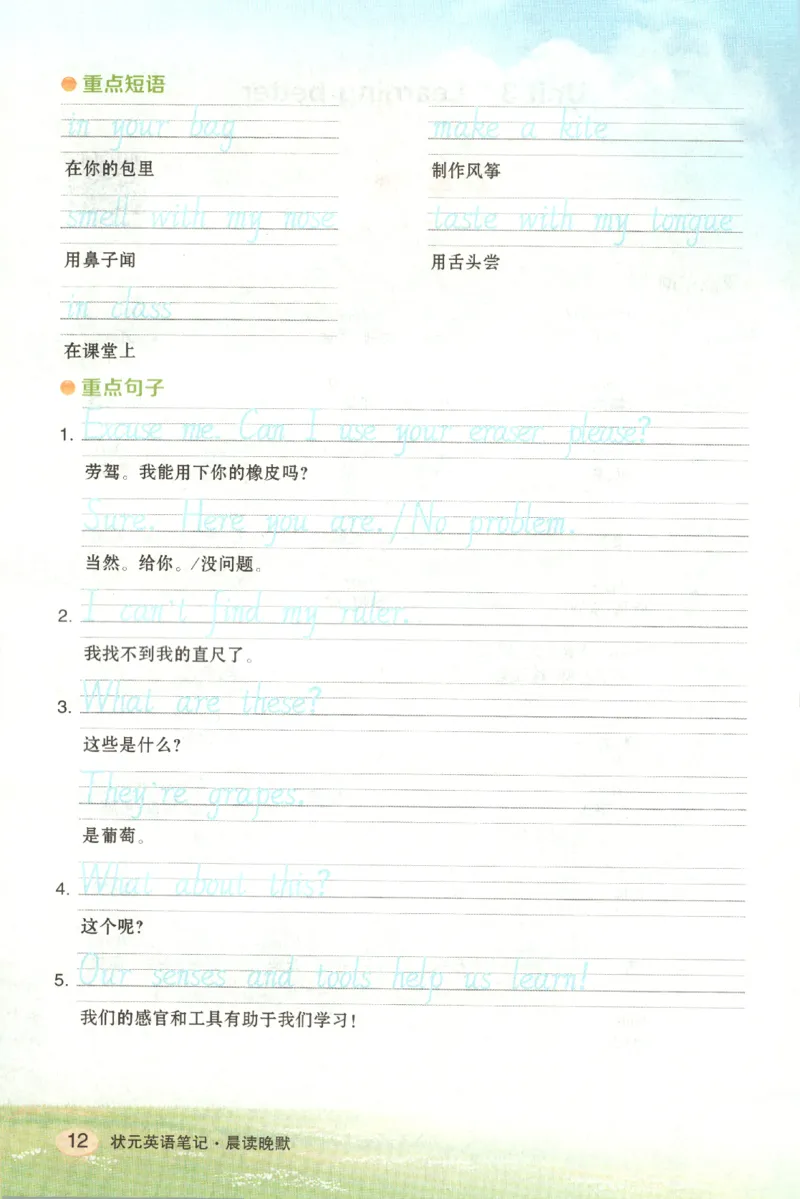 重点短语
in your bag
make a kite
在你的包里
制作风筝
smell with my nose
taste with my tongue
用鼻子闻
用舌头尝
in class
在课堂上
重点句子
1. Excuse me. Can I use your eraser please?
劳驾。我能用下你的橡皮吗?
Sure. Here you are./No problem.
当然。给你。/没问题。
2. I can't find my ruler.
我找不到我的直尺了。
3. What are these?
这些是什么?
They're grapes.
是葡萄。
4. What about this?
这个呢?
5. Our senses and tools help us learn!
我们的感官和工具有助于我们学习!
12 状元英语笔记·晨读晚默